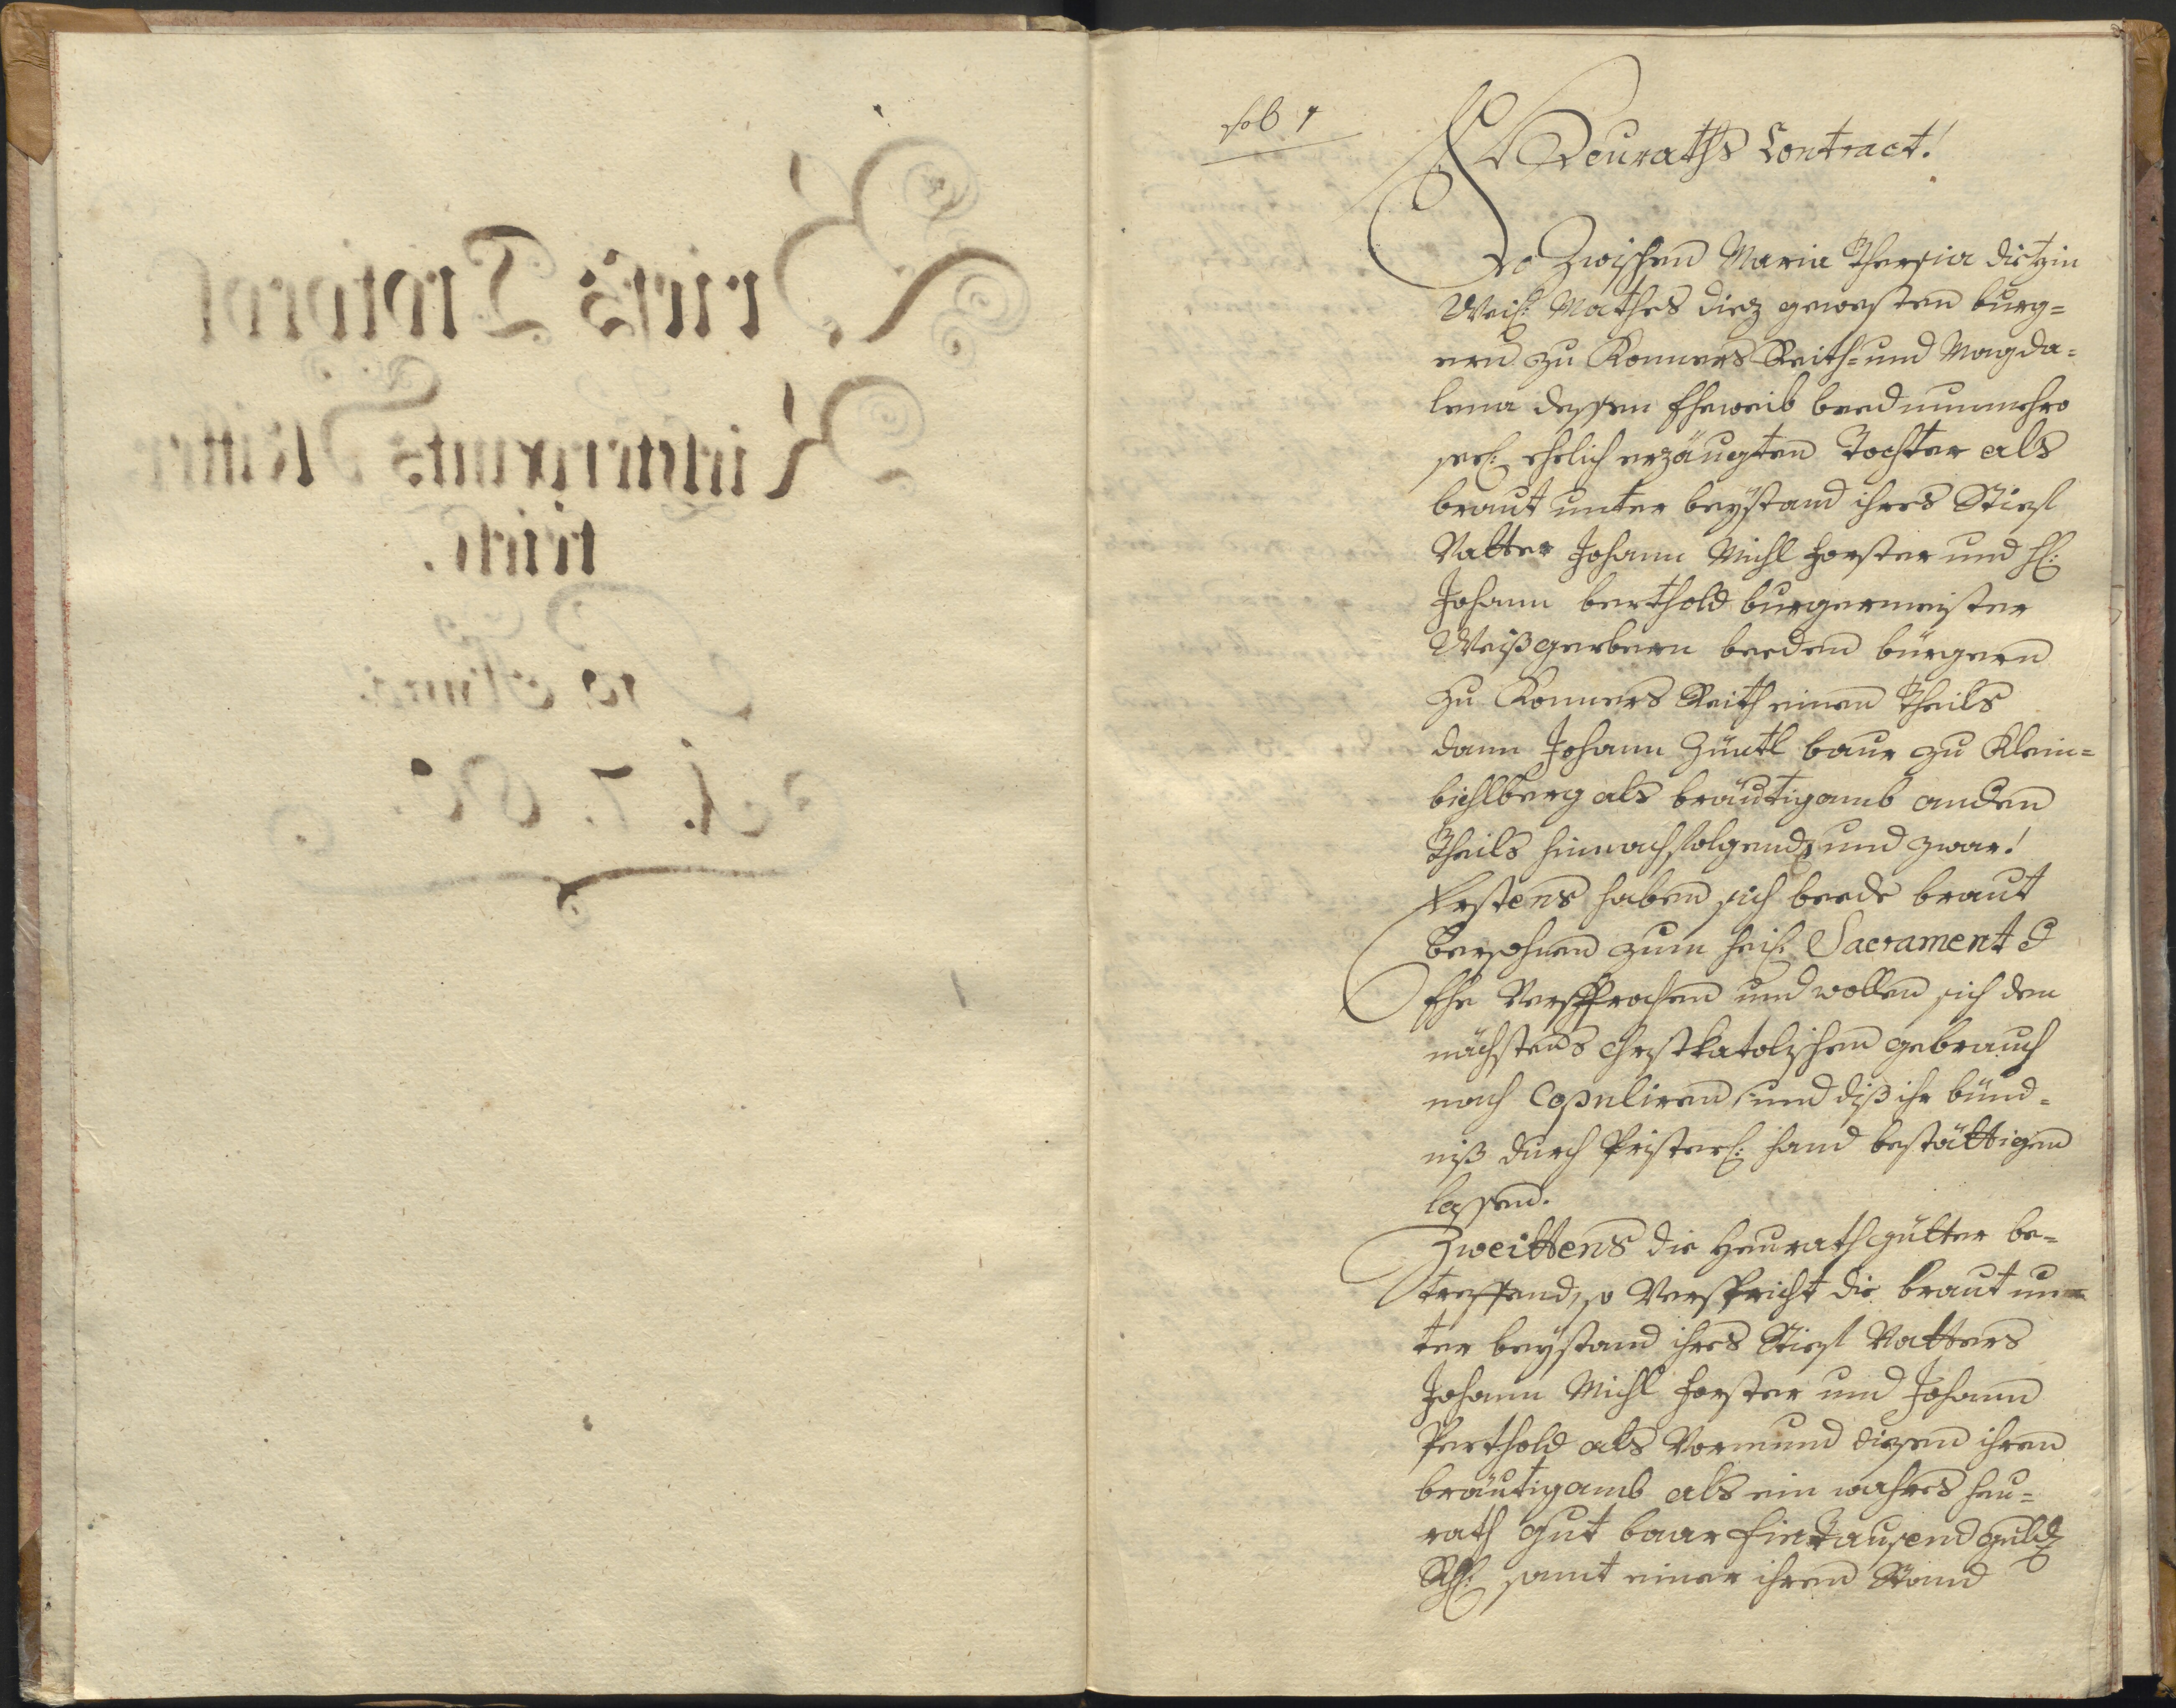 fol 1
Heuraths Contract!
So Zwischen Maria Theresia dietzin
Weil: Mathes diez gewesten burg=
ern zu Konners Reith= und Magda=
lena dessen Eheweib beed nunmehro
seel: ehelich erzäugten Tochter als
braut unter beystand ihres Stief
Vatter Johann Michl Forster und H:
Johann berthold burgermeister
Weißgerbern beeden bürgern
zu Konners Reith einen Theils
dann Johann Züntl baur zu Klein=
bichlberg als bräutigamb andern
Theils hinnachfolgends und zwar!
Erstens haben sich beede braut
Persohnen zum heil: Sacrament d
Ehe Versprochen und wollen sich dem
nächstens christkatolischen gebrauch
nach Copuliren, und diß ihr bünd=
niß durch Pristerl: hand bestättigen
lassen.
Zweittens die Heurathgütter be=
treffend, so Verspricht die braut un=
ter beystand ihres Stief Vatters
Johann Michl Forster und Johann
Perthold als Vormund diesen ihren
bräutigamb als ein wahres Heu=
rath Gut baar Ein Tausend guld
Rh: samt einer ihren Stand